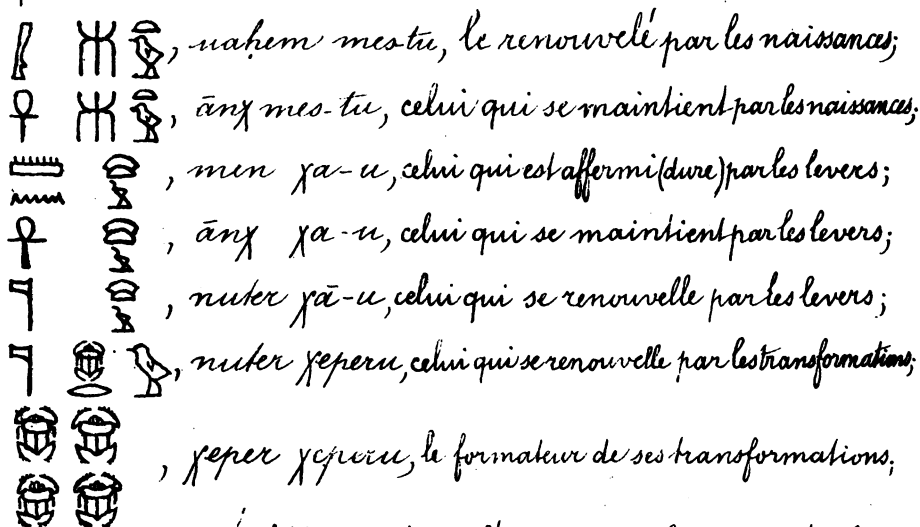 𓄴𓄟𓋴𓅱, uaḥem mes-tu, le renouvelé par les naissances;
𓋹, ānχ mes-tu, celui qui se maintient par les naissances;
𓏠𓈖 𓈍, men χa-u, celui qui est affermi (dure) par les levers;
𓋹 𓈍, ānχ χa-u, celui qui se maintient par les levers;
𓊹 𓈍, nuter χā-u, celui qui se renouvelle par les levers;
𓊹 𓆣𓂋𓅱, nuter χeperu, celui qui se renouvelle par les transformations;
𓆣𓆣𓆣𓆣, χeper χeperu, le formateur de ses transformations;